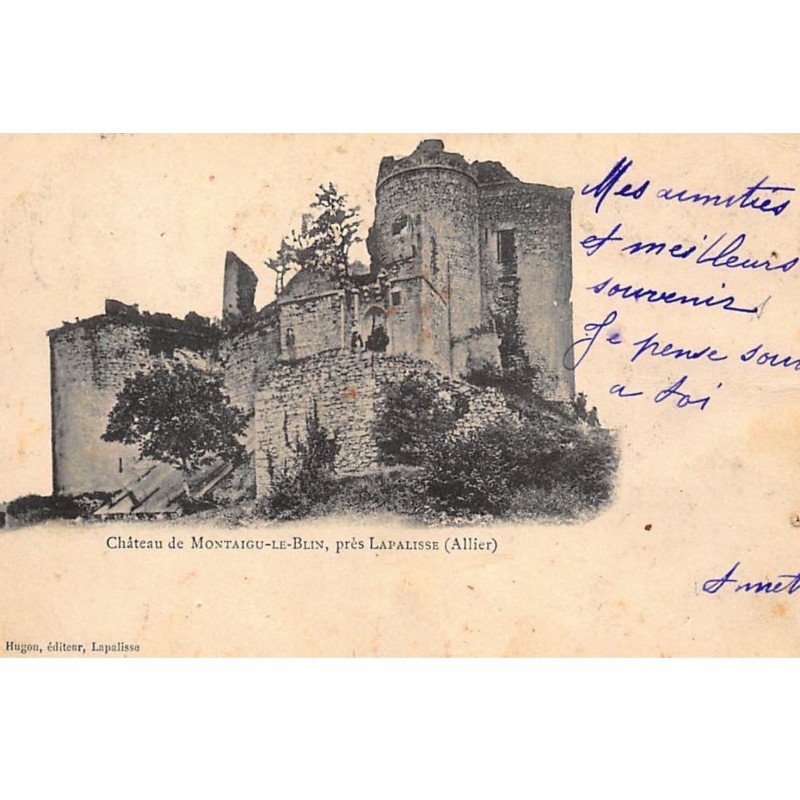 Mes amitiés
et meilleurs
souvenirs
Je pense
a toi
Château de MONTAIGU-LE-BLIN, près LAPALISSE (Allier)
Hugon, éditeur, Lapalisse